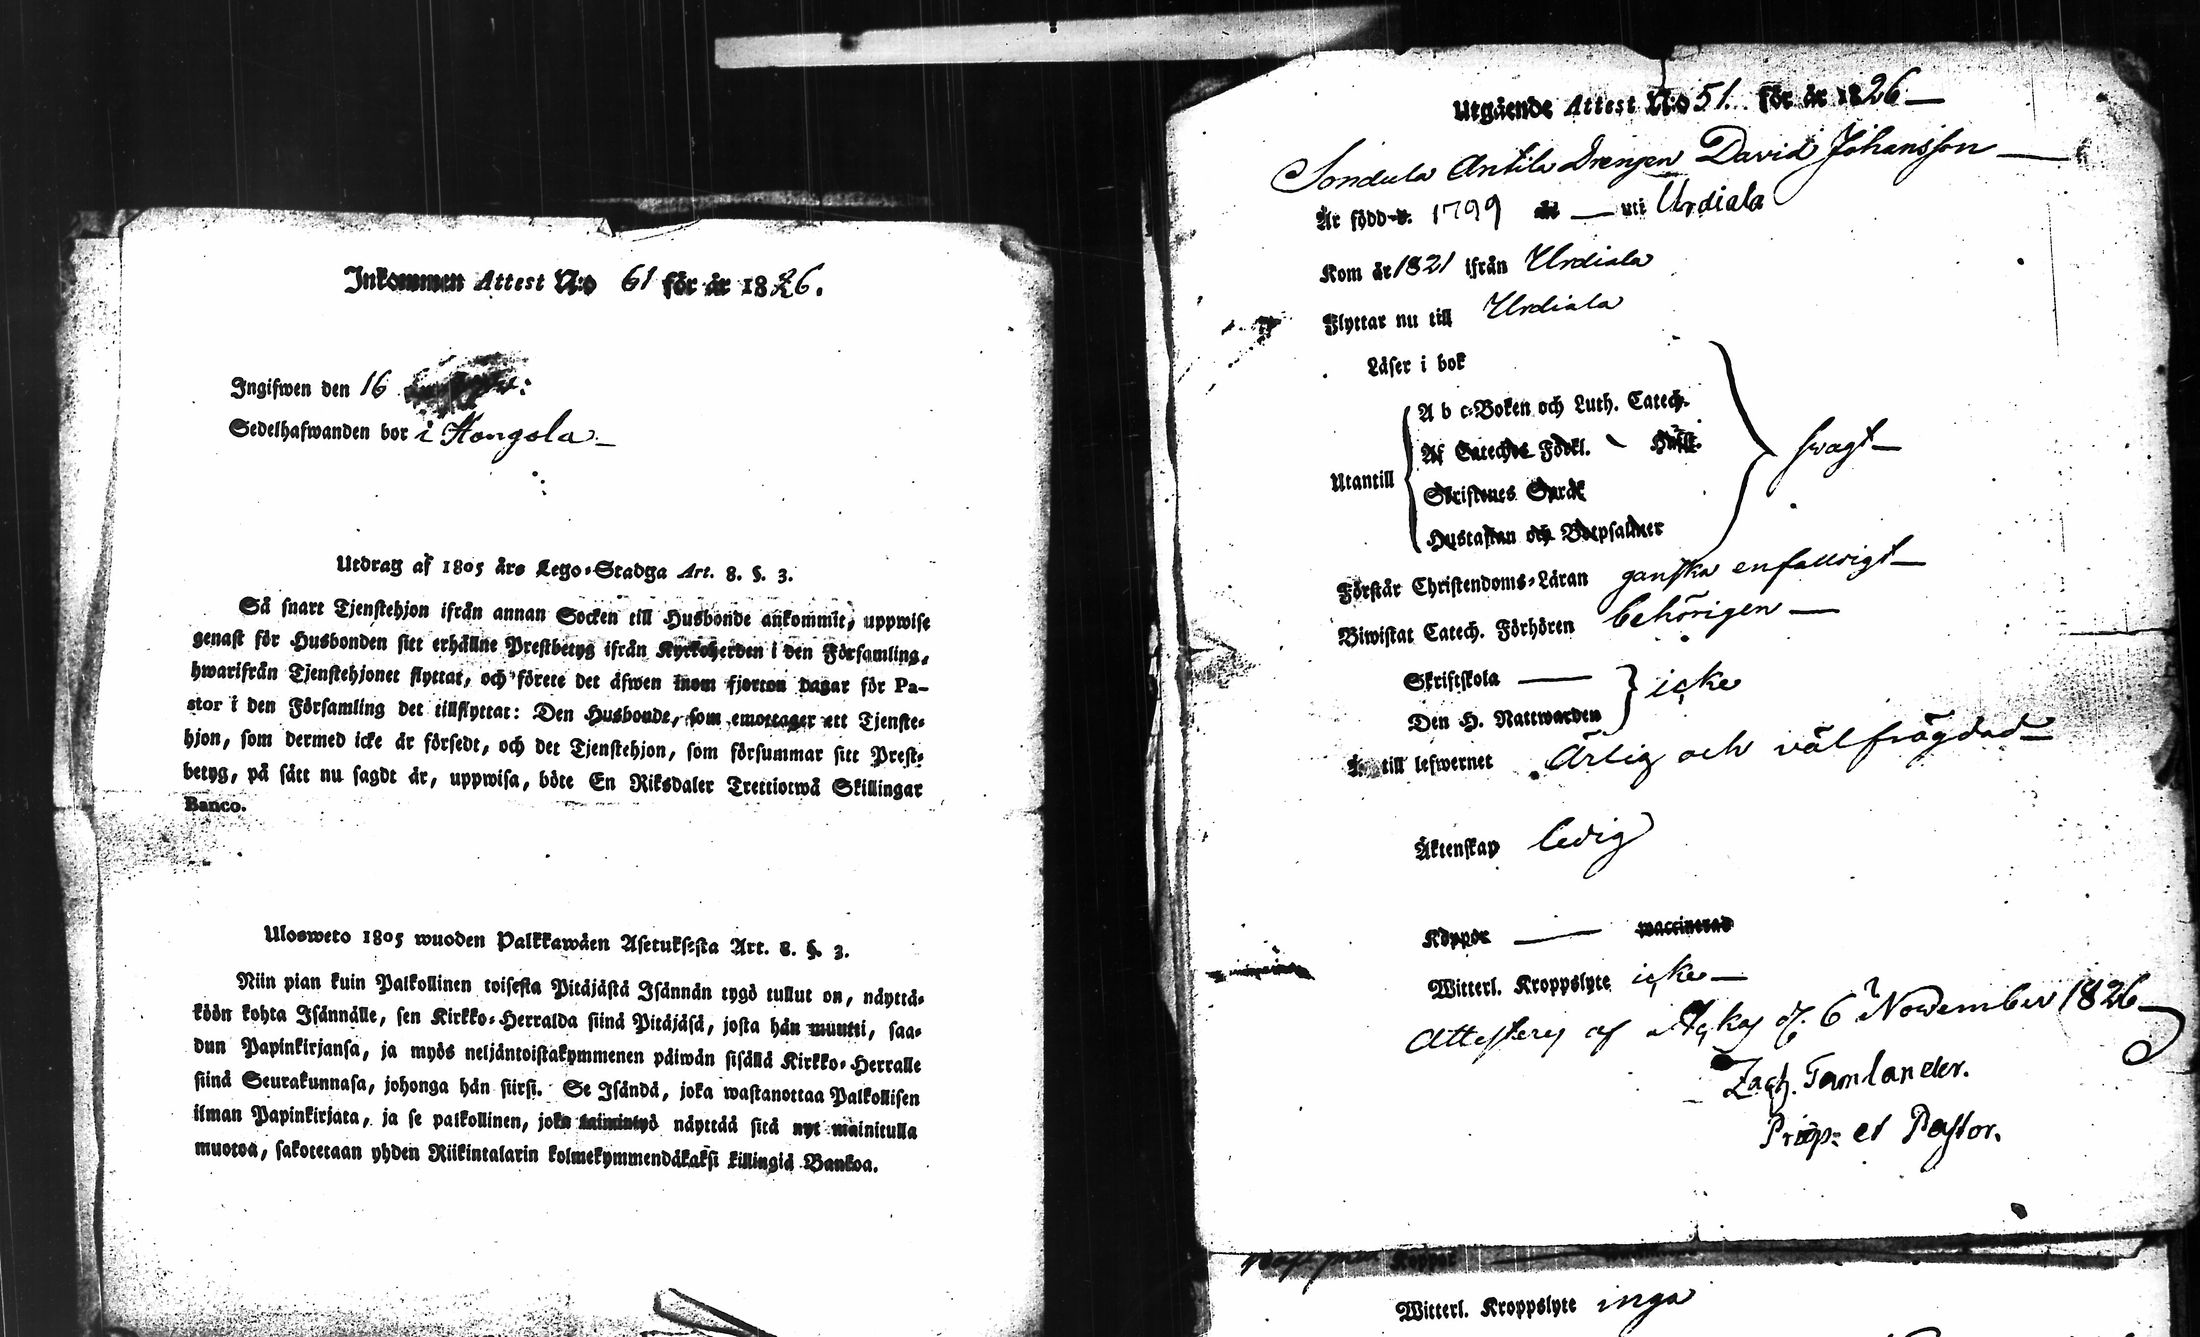 Inkommen Attest N:o 61 för år 1826.
Ingifwen den 16
Sedelhafwanden bor i Kongola
Utdrag af 1805 års Lego-Stadga Art. 8. §. 3.
Så snart Tjenstehjon ifrån annan Socken till Husbonde ankommit, uppwise
genast för Husbonden sitt erhållne Prestbetyg ifrån Kyrkoherden i den Församling,
hwarifrån Tjenstehjonet flyttat, och förete det äfwen inom fjorton dagar för Pa-
stor i den Församling det tillflyttat: Den Husbonde, som emottager ett Tjenste-
hjon, som dermed icke är försedt, och det Tjenstehjon, som försummar sitt Prest-
betyg, på sätt nu sagdt är, uppwisa, böte En Riksdaler Trettiotwå Skillingar
Banco.
Ulosweto 1805 wuoden Palkkawäen Asetuksesta Art. 8. §. 3.
Niin pian kuin Palkollinen toisesta Pitäjästä Isännän tygö tullut on, näyttä-
köön kohta Isännälle, sen Kirkko-Herralda siinä Pitäjäsä, josta hän muutti, saa-
dun Papinkirjansa, ja myös neljäntoistakymmenen päiwän sisällä Kirkko-Herralle
siinä Seurakunnasa, johonga hän siirsi. Se Isändä, joka wastanottaa Palkollisen
ilman Papinkirjata, ja se palkollinen, joka laimintyö näyttää sitä nyt mainitulla
muotoa, sakotetaan yhden Riikintalarin kolmekymmendäkaksi killingiä Bankoa.
Utgående Attest N:o 51. för år 1826
Sondula Antila Drengen David Johansson
Är född d. 1799 uti Urdiala
Kom år 1821 ifrån Urdiala
Flyttar nu till Urdiala
Läser i bok
A b c-Boken och Luth. Catech.
Af Cateches Förkl. Husst.
Utantill
Skriftenes Språk
Hustaflan och Botpsalmer
svagt
Förstår Christendoms-Läran ganska enfalldigt
Biwistat Catech. Förhören behörigen
Skriftskola
Den H. Nattwarden
icke
till lefwernet Ärlig och välfrägdad
Äktenskap ledig
Koppor waccinerad
Witterl. Kroppslyte icke
Attesterj af Ackas d. 6 November 1826
Zach. Tamlander.
Præp: et Pastor.
Koppor
Witterl. Kroppslyte inga